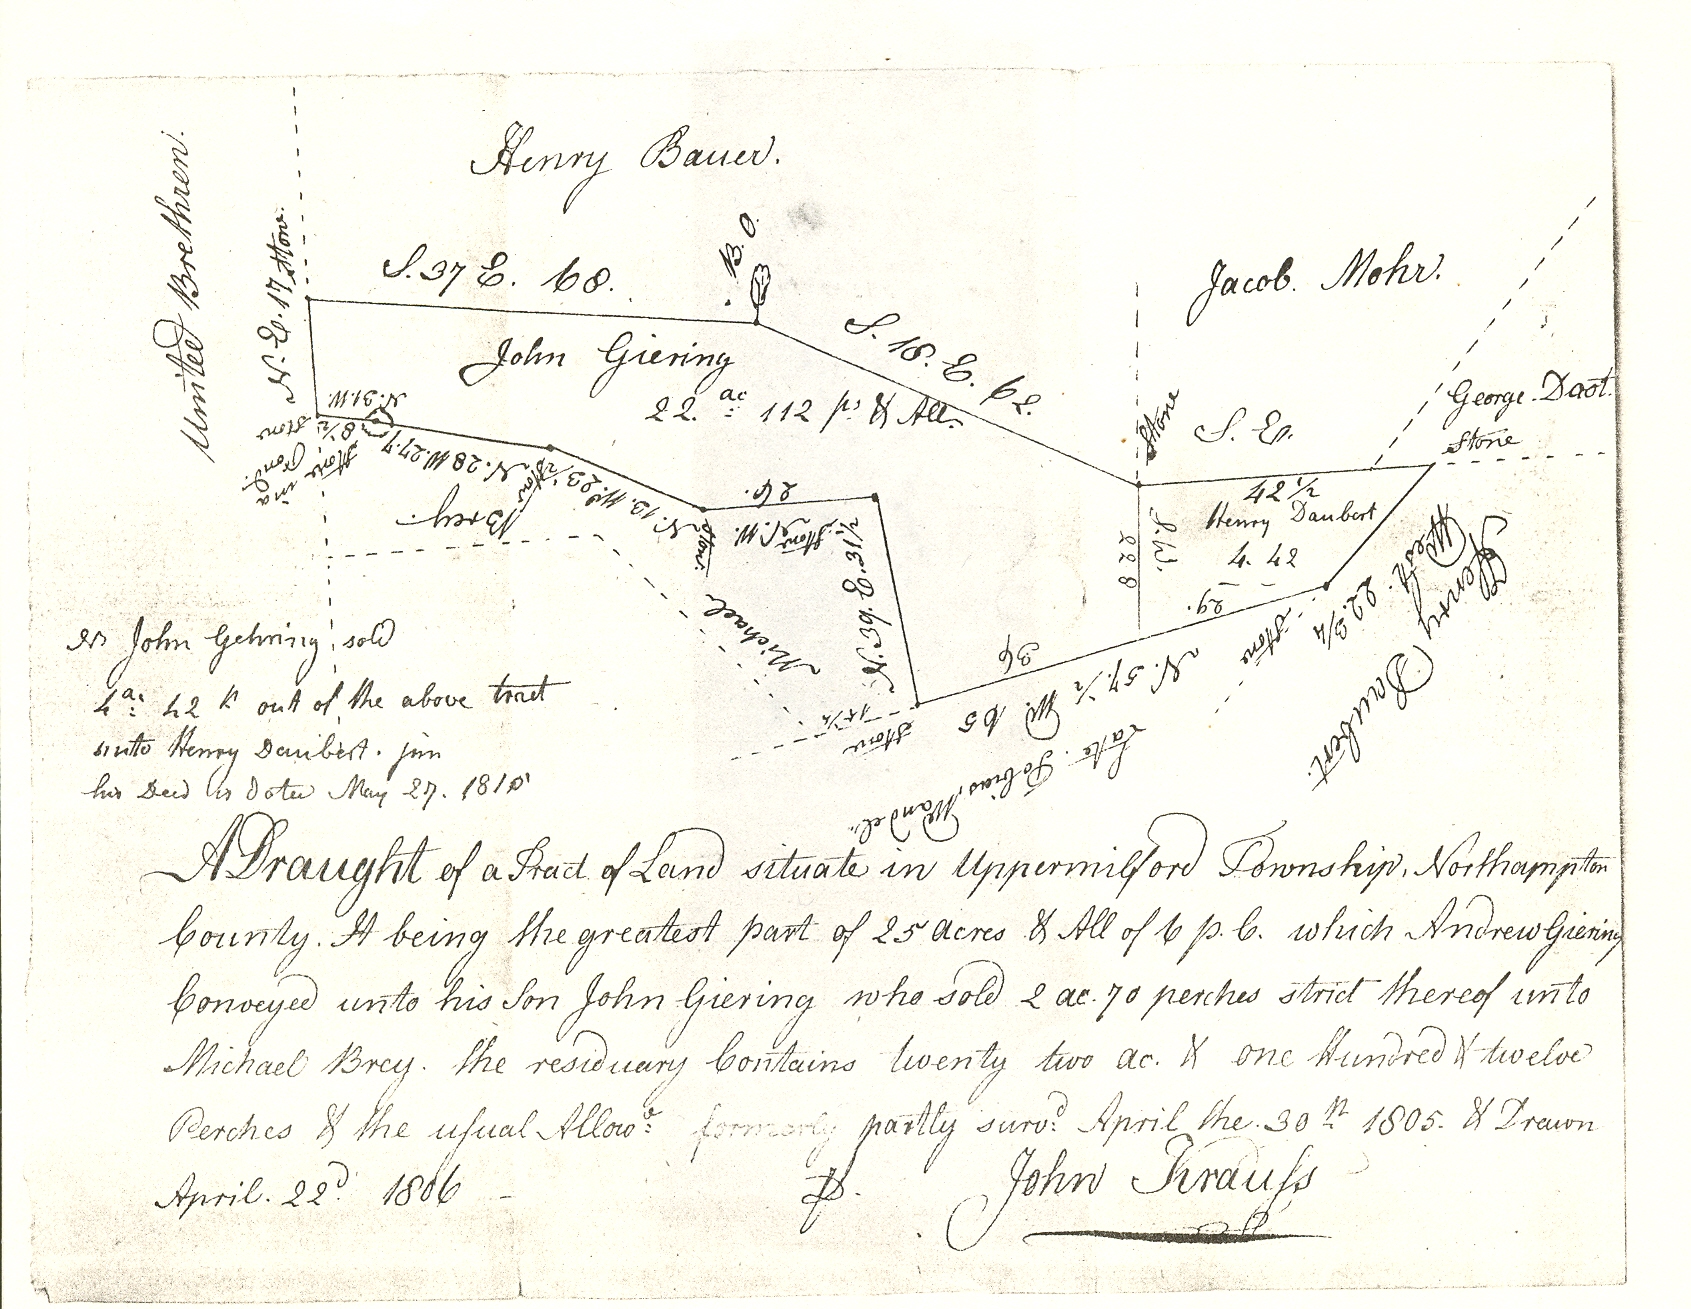 Henry Bauer.
United Brethren.
N. E. 17 stone.
S. 37 E. 68.
B. O.
Jacob. Mohr.
John Giering
22. ac 112 ps & All.
S. 18. E. 62.
Stone
S. E.
George. Dast.
Stone
N. 31 W.
8 1/2
stone
stone
N. 28 W. 27.7
stone
N. 13. W. 23 1/2
Brey.
Stone
26.
N. W.
stone
S. 39. E. 31 1/2
42 1/2
Henry Daubert
4. 42
S. W.
22 8
29.
36
West. 22. 3/4
Henry Daubert.
Stone
N. 57 1/2 W. 65
Michael
15 1/2
Stone
Late. Tobias Wandel.
John Gehring sold
4 a: 42 p out of the above tract
unto Henry Daubert.
his Deed is dated May 27. 1810
A Draught of a Tract of Land situate in Uppermilford Township, Northampton
County. It being the greatest part of 25 acres & All of 6 p. C. which Andrew Giering
Conveyed unto his Son John Giering who sold 2 ac. 70 perches strict thereof unto
Michael Brey. the residuary Contains twenty two ac. & one Hundred & twelve
Perches & the usual Allowe: formerly partly survd: April the. 30th 1805. & Drawn
April. 22d. 1806 p. John Krauss